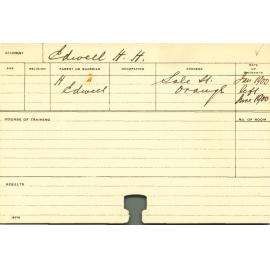 STUDENT Edwell H. H.
AGE RELIGION PARENT OR GUARDIAN OCCUPATION ADDRESS DATE OF ENTRANCE
H Sale St. Jan 1900
Edwell Orange Left
June 1900
COURSE OF TRAINING NO. OF ROOM
RESULTS